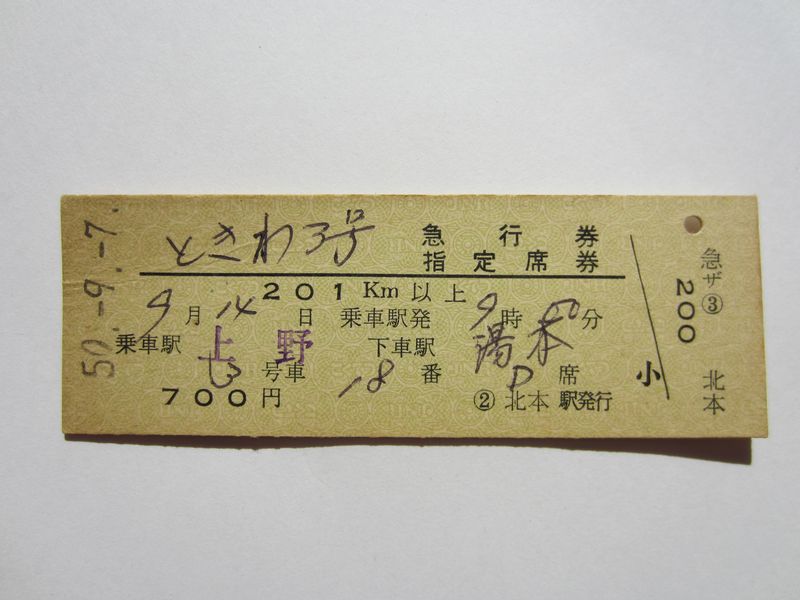 50.-9.-7.
ときわ3号 急行券
指定席券
201Km以上
9月14日 乗車駅発 9時50分
乗車駅 上野 下車駅 湯本
3号車 18番 D席
700円 ②北本駅発行
小
急ザ③
200
北本